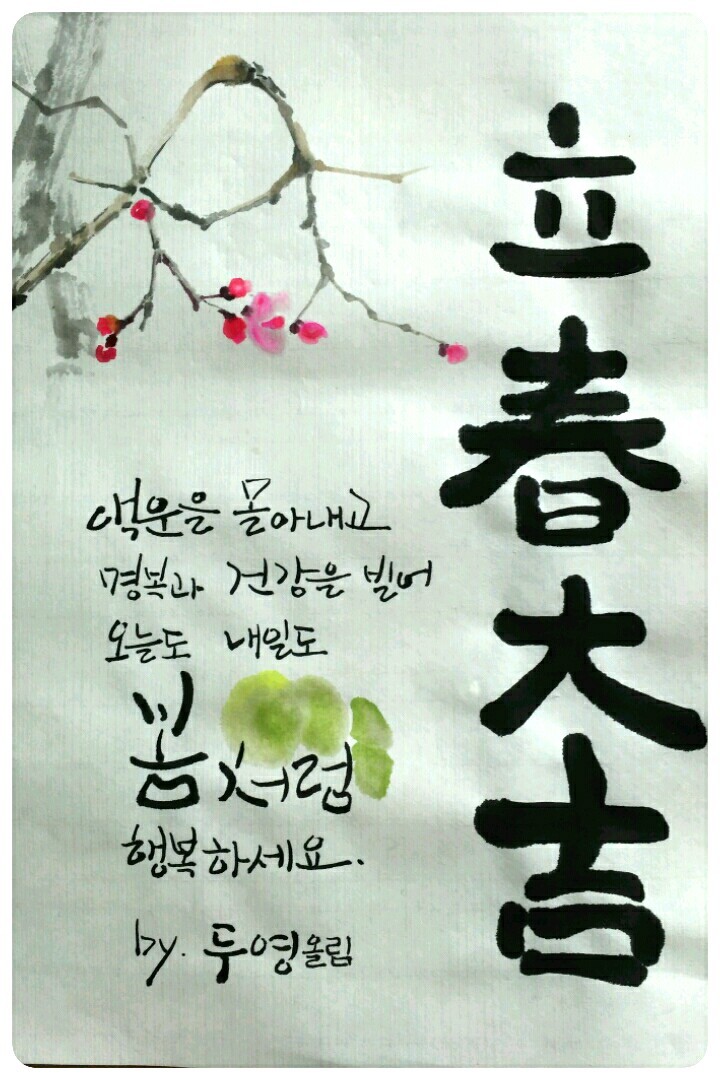 立春大吉
액운을 몰아내고
명복과 건강을 빌어
오늘도 내일도
봄처럼
행복하세요.
by. 두영올림